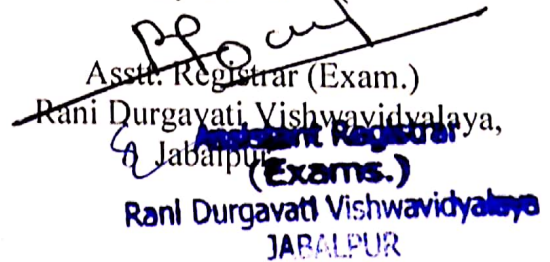 Asstt. Registrar (Exam.)
Rani Durgavati Vishwavidyalaya,
Jabalpur
Assistant Registrar
(Exams.)
Rani Durgavati Vishwavidyalaya
JABALPUR